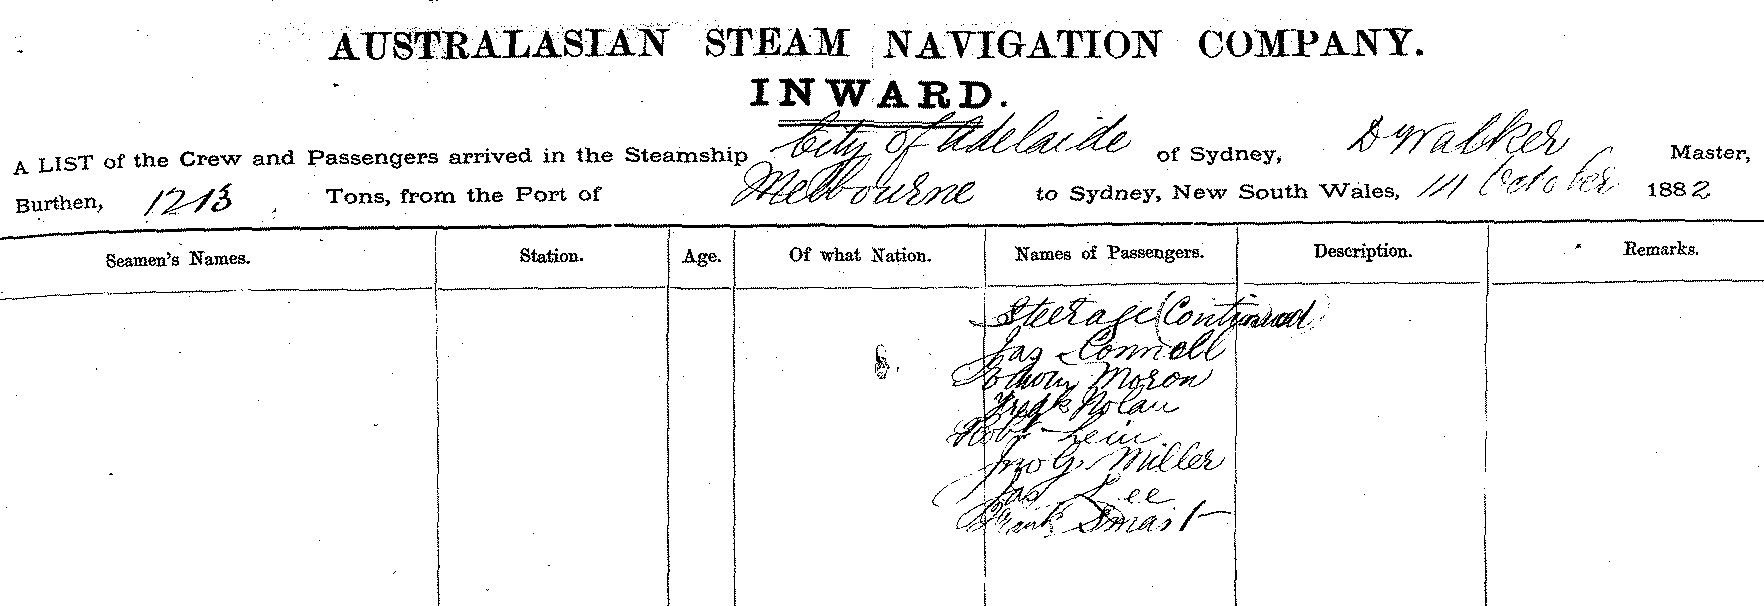 AUSTRALASIAN STEAM NAVIGATION COMPANY.
INWARD.
A LIST of the Crew and Passengers arrived in the Steamship City of Adelaide of Sydney, D Walker Master,
Burthen, 1213 Tons, from the Port of Melbourne to Sydney, New South Wales, October 1882
Seamen's Names. Station. Age. Of what Nation. Names of Passengers. Description. Remarks.
Steerage (Continued)
Jas Connell
Edwin Moron
Fredk Nolan
Robt Lein
Jno G. Miller
Jas Lee
Frank Smart